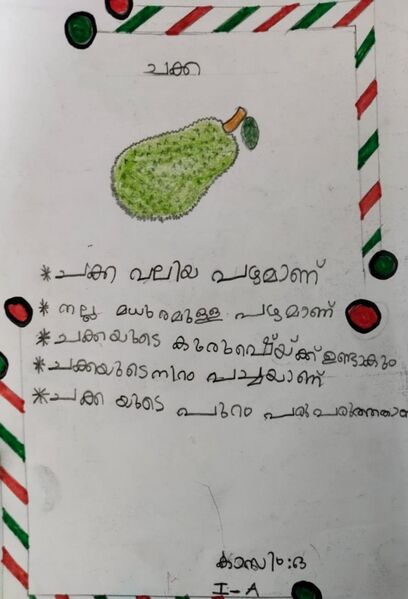 ചക്ക
* ചക്ക വലിയ പഴമാണ്
* നല്ല മധുരമുള്ള പഴമാണ്
* ചക്കയുടെ ഉണ്ടാകും
* ചക്കയുടെ നിറം പച്ചയാണ്
* ചക്ക യുടെ പുറം
I-A